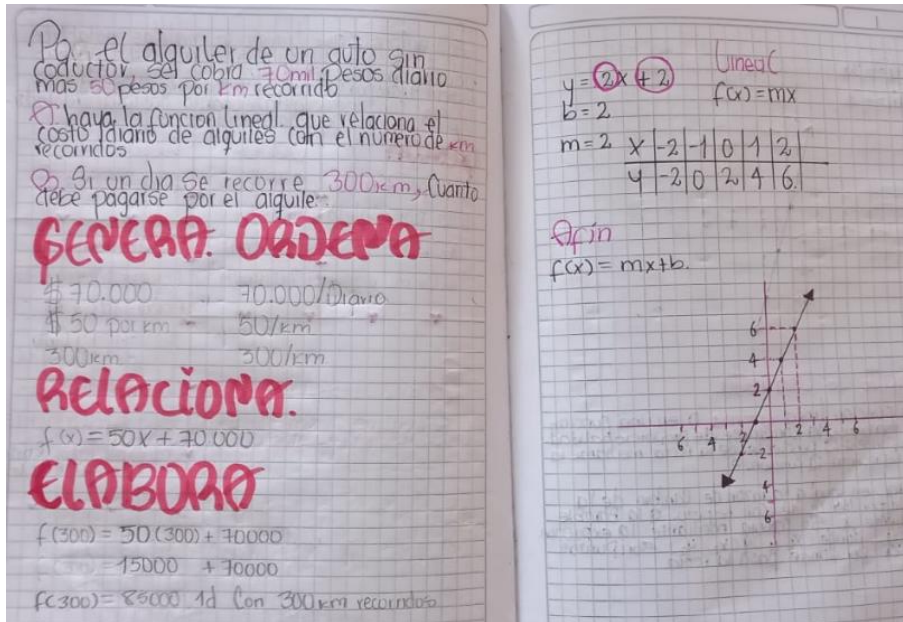 Pa. el alquiler de un auto sin
coductor, sel cobra 70mil Pesos diario
mas 50 pesos por km recorrido
haya la funcion lineal que relaciona el
costo diario de alquiles con el numero de km
recorridos
Si un dia se recorre 300km, Cuanto
debe pagarse por el alquile
GENERA. ORDENA
$70.000 70.000/Diario
$50 por km - 50/km
300km 300/km
RELACIONA.
f(x) = 50X + 70.000
ELABORA
f(300) = 50(300) + 70000
= 15000 + 70000
f(300) = 85000 1d Con 300km recorridos
y = 2x + 2
Lineal
b = 2
f(x) = mx
m = 2
X -2 -1 0 1 2
y -2 0 2 4 6.
Afin
f(x) = mx+b.
6
4
2
6 4 2 2 4 6
-2
4
6